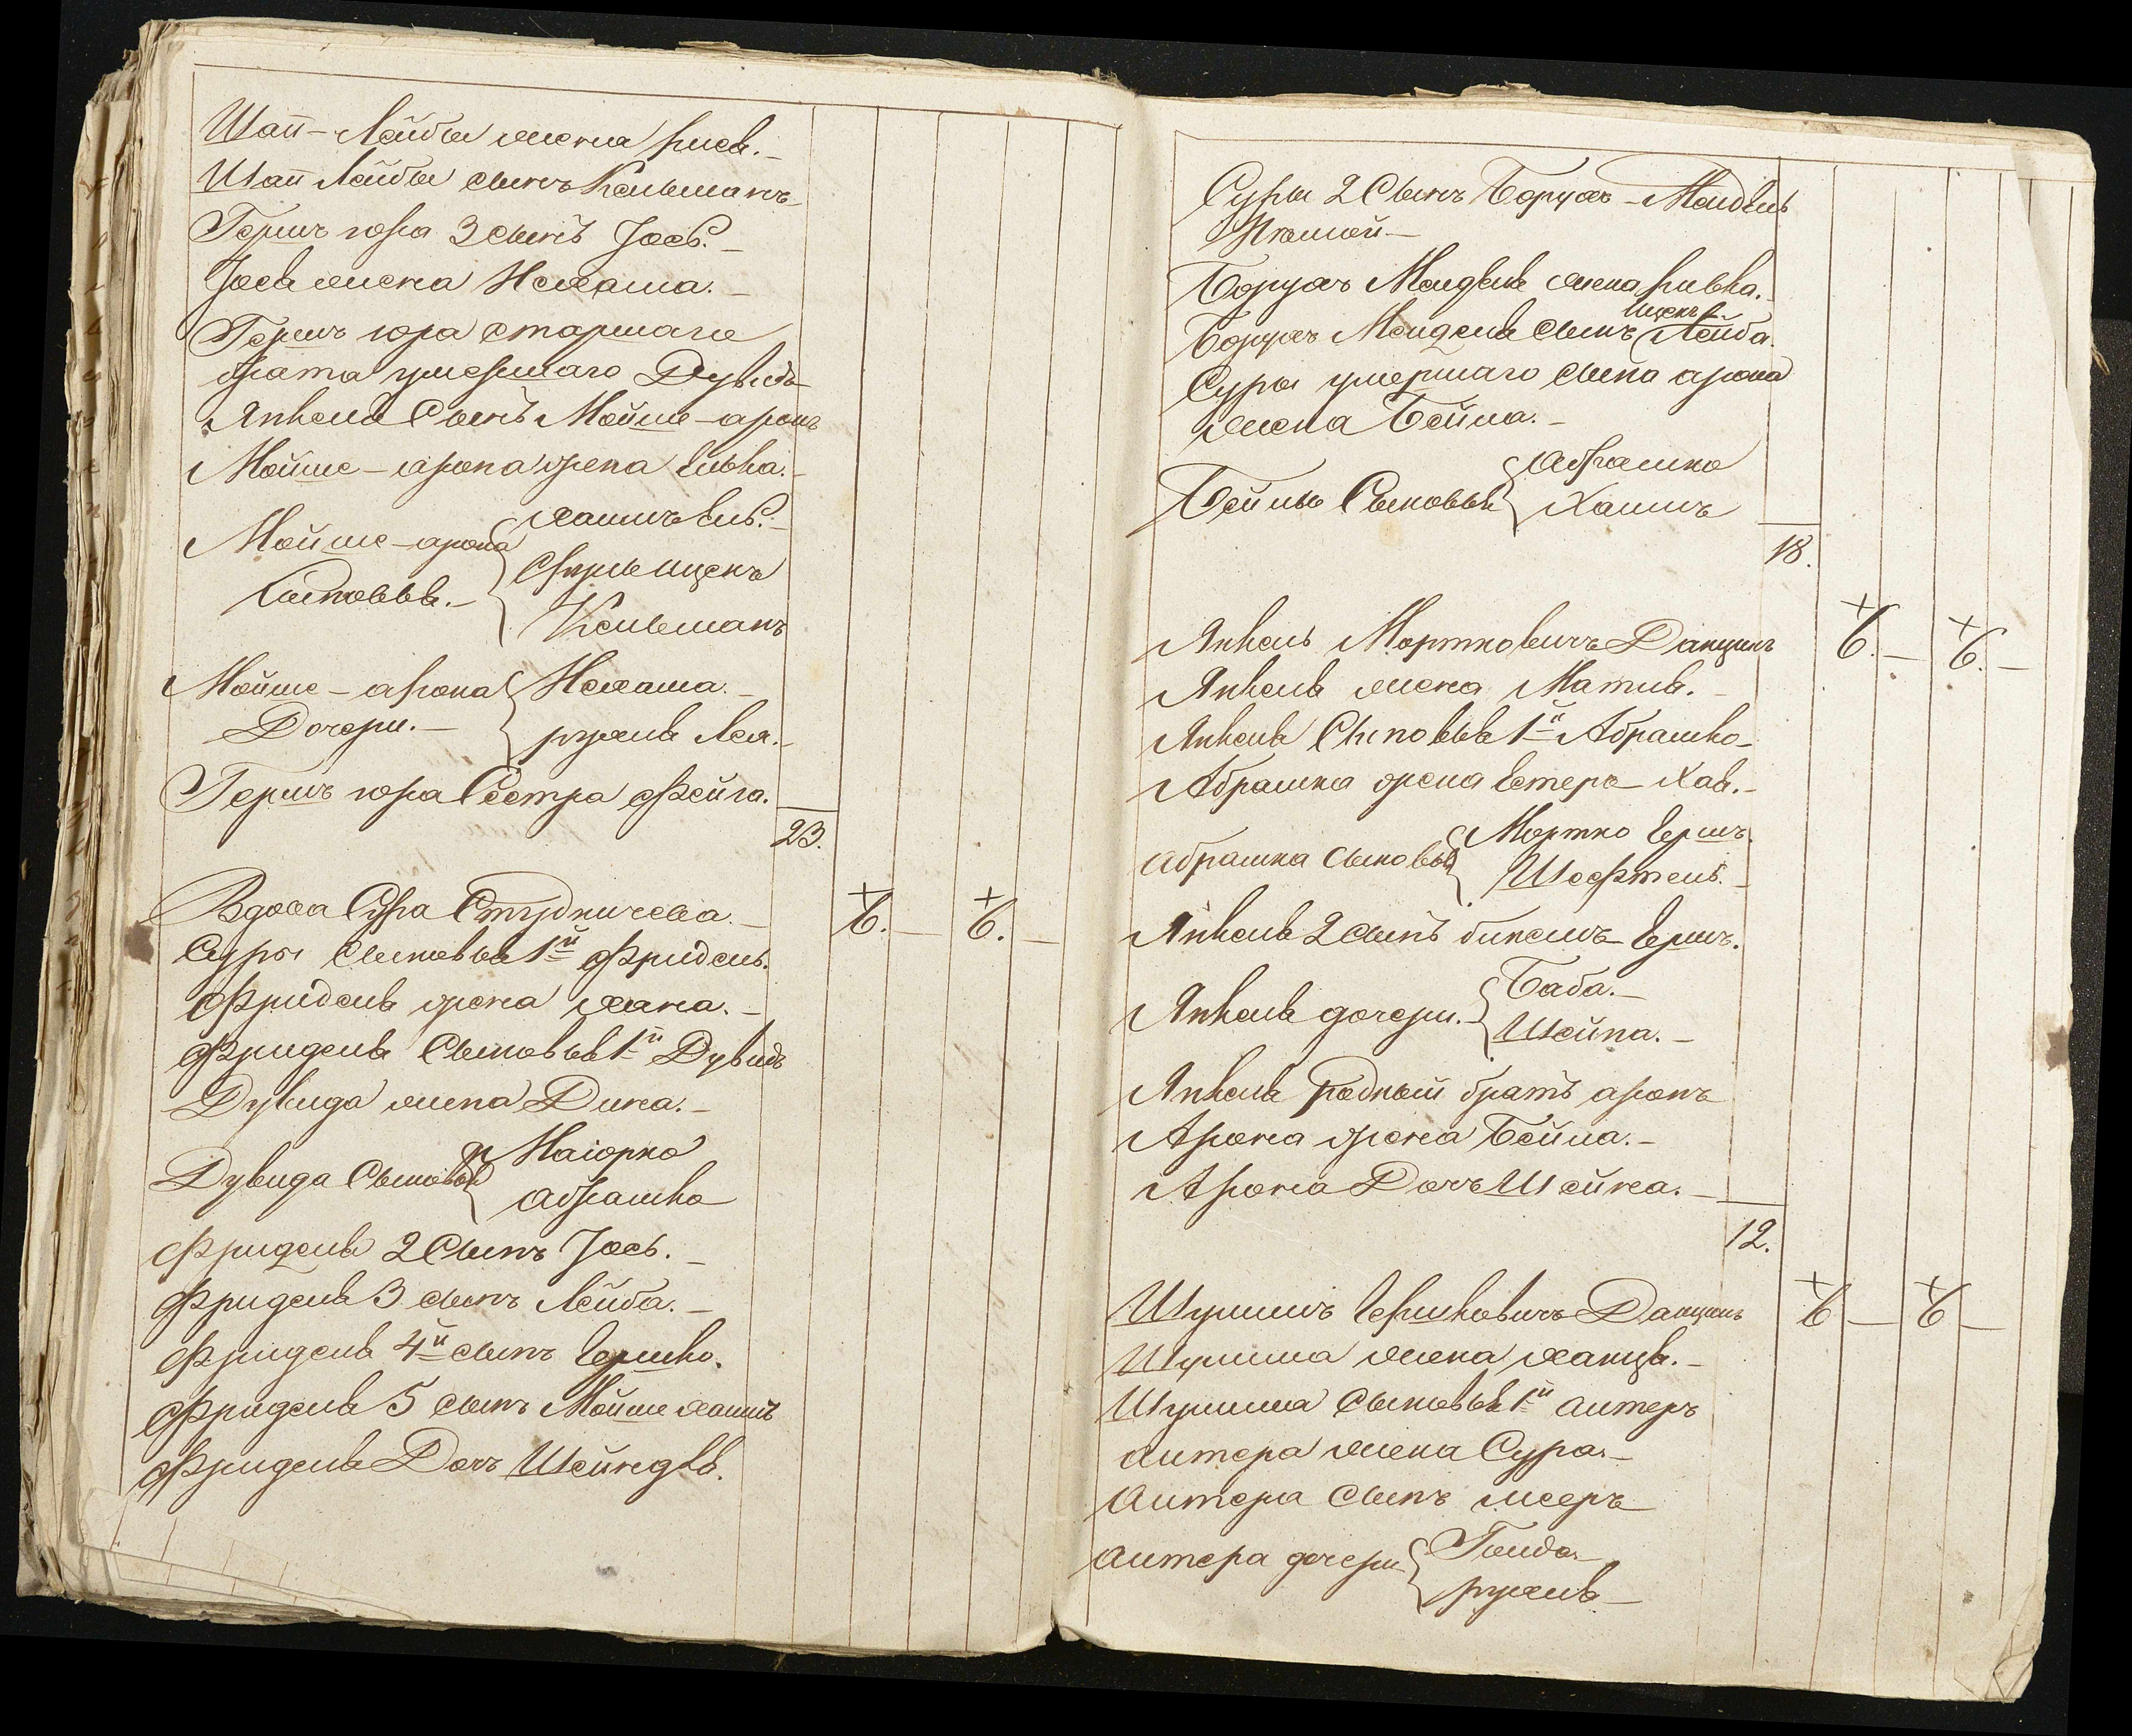 Шап-Лейбы жена Рися.-
Шап Лейбы сынъ Кельманъ
Гершъ юра 3 сынъ Іось.-
Іося жена Нехама.-
Гершъ юра старшаго
брата умершаго Дувидъ
Янкеля Сынъ Мойше-аронъ
Мойше-арона жена Сивка.-
Мойше-арона
Сыновья.-
хаимъ
Сруль ицекъ
Кельманъ
Мойше-арона
Дочери.-
Нехама.-
рухля Лея.-
Гершъ юра Сестра Фейга.
23.
Вдова Сура Студничева.-
Суры Сыновья 1й Фридель.
Фриделя жена хана.-
Фриделя Сыновья 1й Дувидъ
Дувида жена Дина.-
Дувида Сыновья
Маіорко
абрашко
Фриделя 2 Сынъ Іось.-
Фриделя 3 сынъ Лейба.-
Фриделя 4й сынъ Гершко.
Фриделя 5 сынъ Мойше хаимъ
Фриделя Дочь Шейндля.
6.- 6.-
Суры 2 Сынъ Борухъ-Мендель
Боруха Менделя жена Ривка.
ицекъ
Боруха Менделя сынъ Лейба.
Суры умершаго сына арона
жена Бейла.-
Бейлы Сыновья
абрашко
Хаимъ
18.
Янкель Мортковичъ Данцинъ
6.- 6.-
Янкеля жена Матля.-
Янкеля Сыновья 1й Абрашко-
Абрашка жена Естеръ-Хая.-
абрашка сыновья
Мортко Гершъ.
Шефтель.-
Янкеля 2 сынъ Гершъ.
Янкеля дочери.-
Баба.-
Шейна.-
Янкеля Родный братъ аронъ
Арона жена Бейла.-
Арона Дочь Шейна.-
12.
Шулимъ Гершковичъ Данцинъ
6- 6-
Шулима жена ханця.-
Шулима Сыновья 1й алтеръ
алтера жена Сура.-
алтера Сынъ мееръ
алтера дочери
Голда-
рухля-